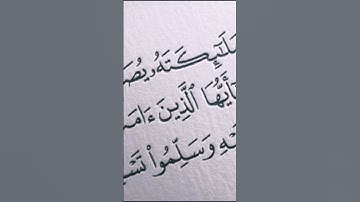 مَلَـٰٓئِكَتَهُۥ يُصَ
يَـٰٓأَيُّهَا ٱلَّذِينَ ءَامَ
هِ وَسَلِّمُوا۟ تَسْ